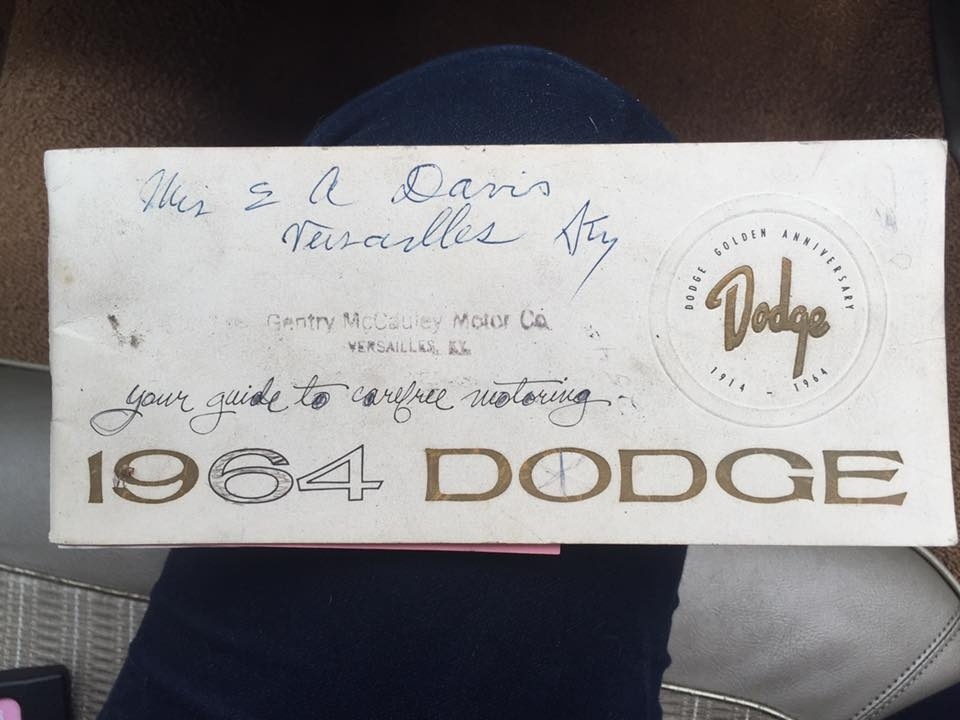 Mrs E A Davis
Versailles Ky
DODGE GOLDEN ANNIVERSARY
Dodge
1914 - 1964
Gentry McCauley Motor Co.
VERSAILLES, KY.
your guide to carefree motoring
1964 DODGE